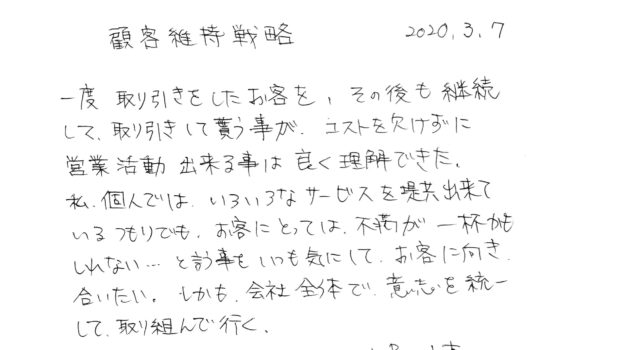 顧客維持戦略 2020.3.7
一度 取り引きをしたお客を、その後も継続
して、取り引きして貰う事が、コストを欠けずに
営業活動 出来る事は良く理解できた。
私、個人では、いろいろなサービスを提共出来て
いるつもりでも、お客にとっては、不満が一杯かも
しれない…と言う事もいつも気にして、お客に向き
合いたい。しかも、会社全体で、意志を統一
して、取り組んで行く、